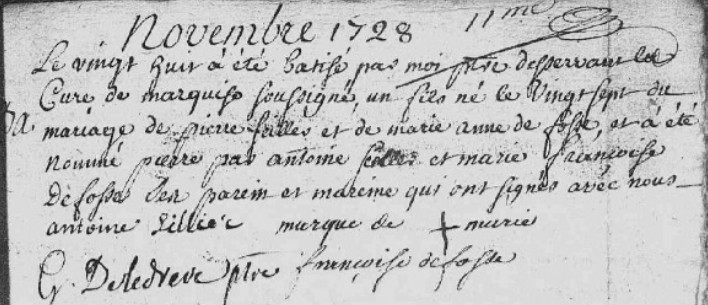 Novembre 1728 11me
Le vingt huit à été batisé par moi ptre desservant la
Cure de marquise soussigné, un fils né le vingt sept du
mariage de pierre et de marie anne de fosse, et à été
nommé pierre par antoine et marie françoise
defosse ses parein et mareine qui ont signés avec nous
antoine marque de + marie
ptre françoise defosse